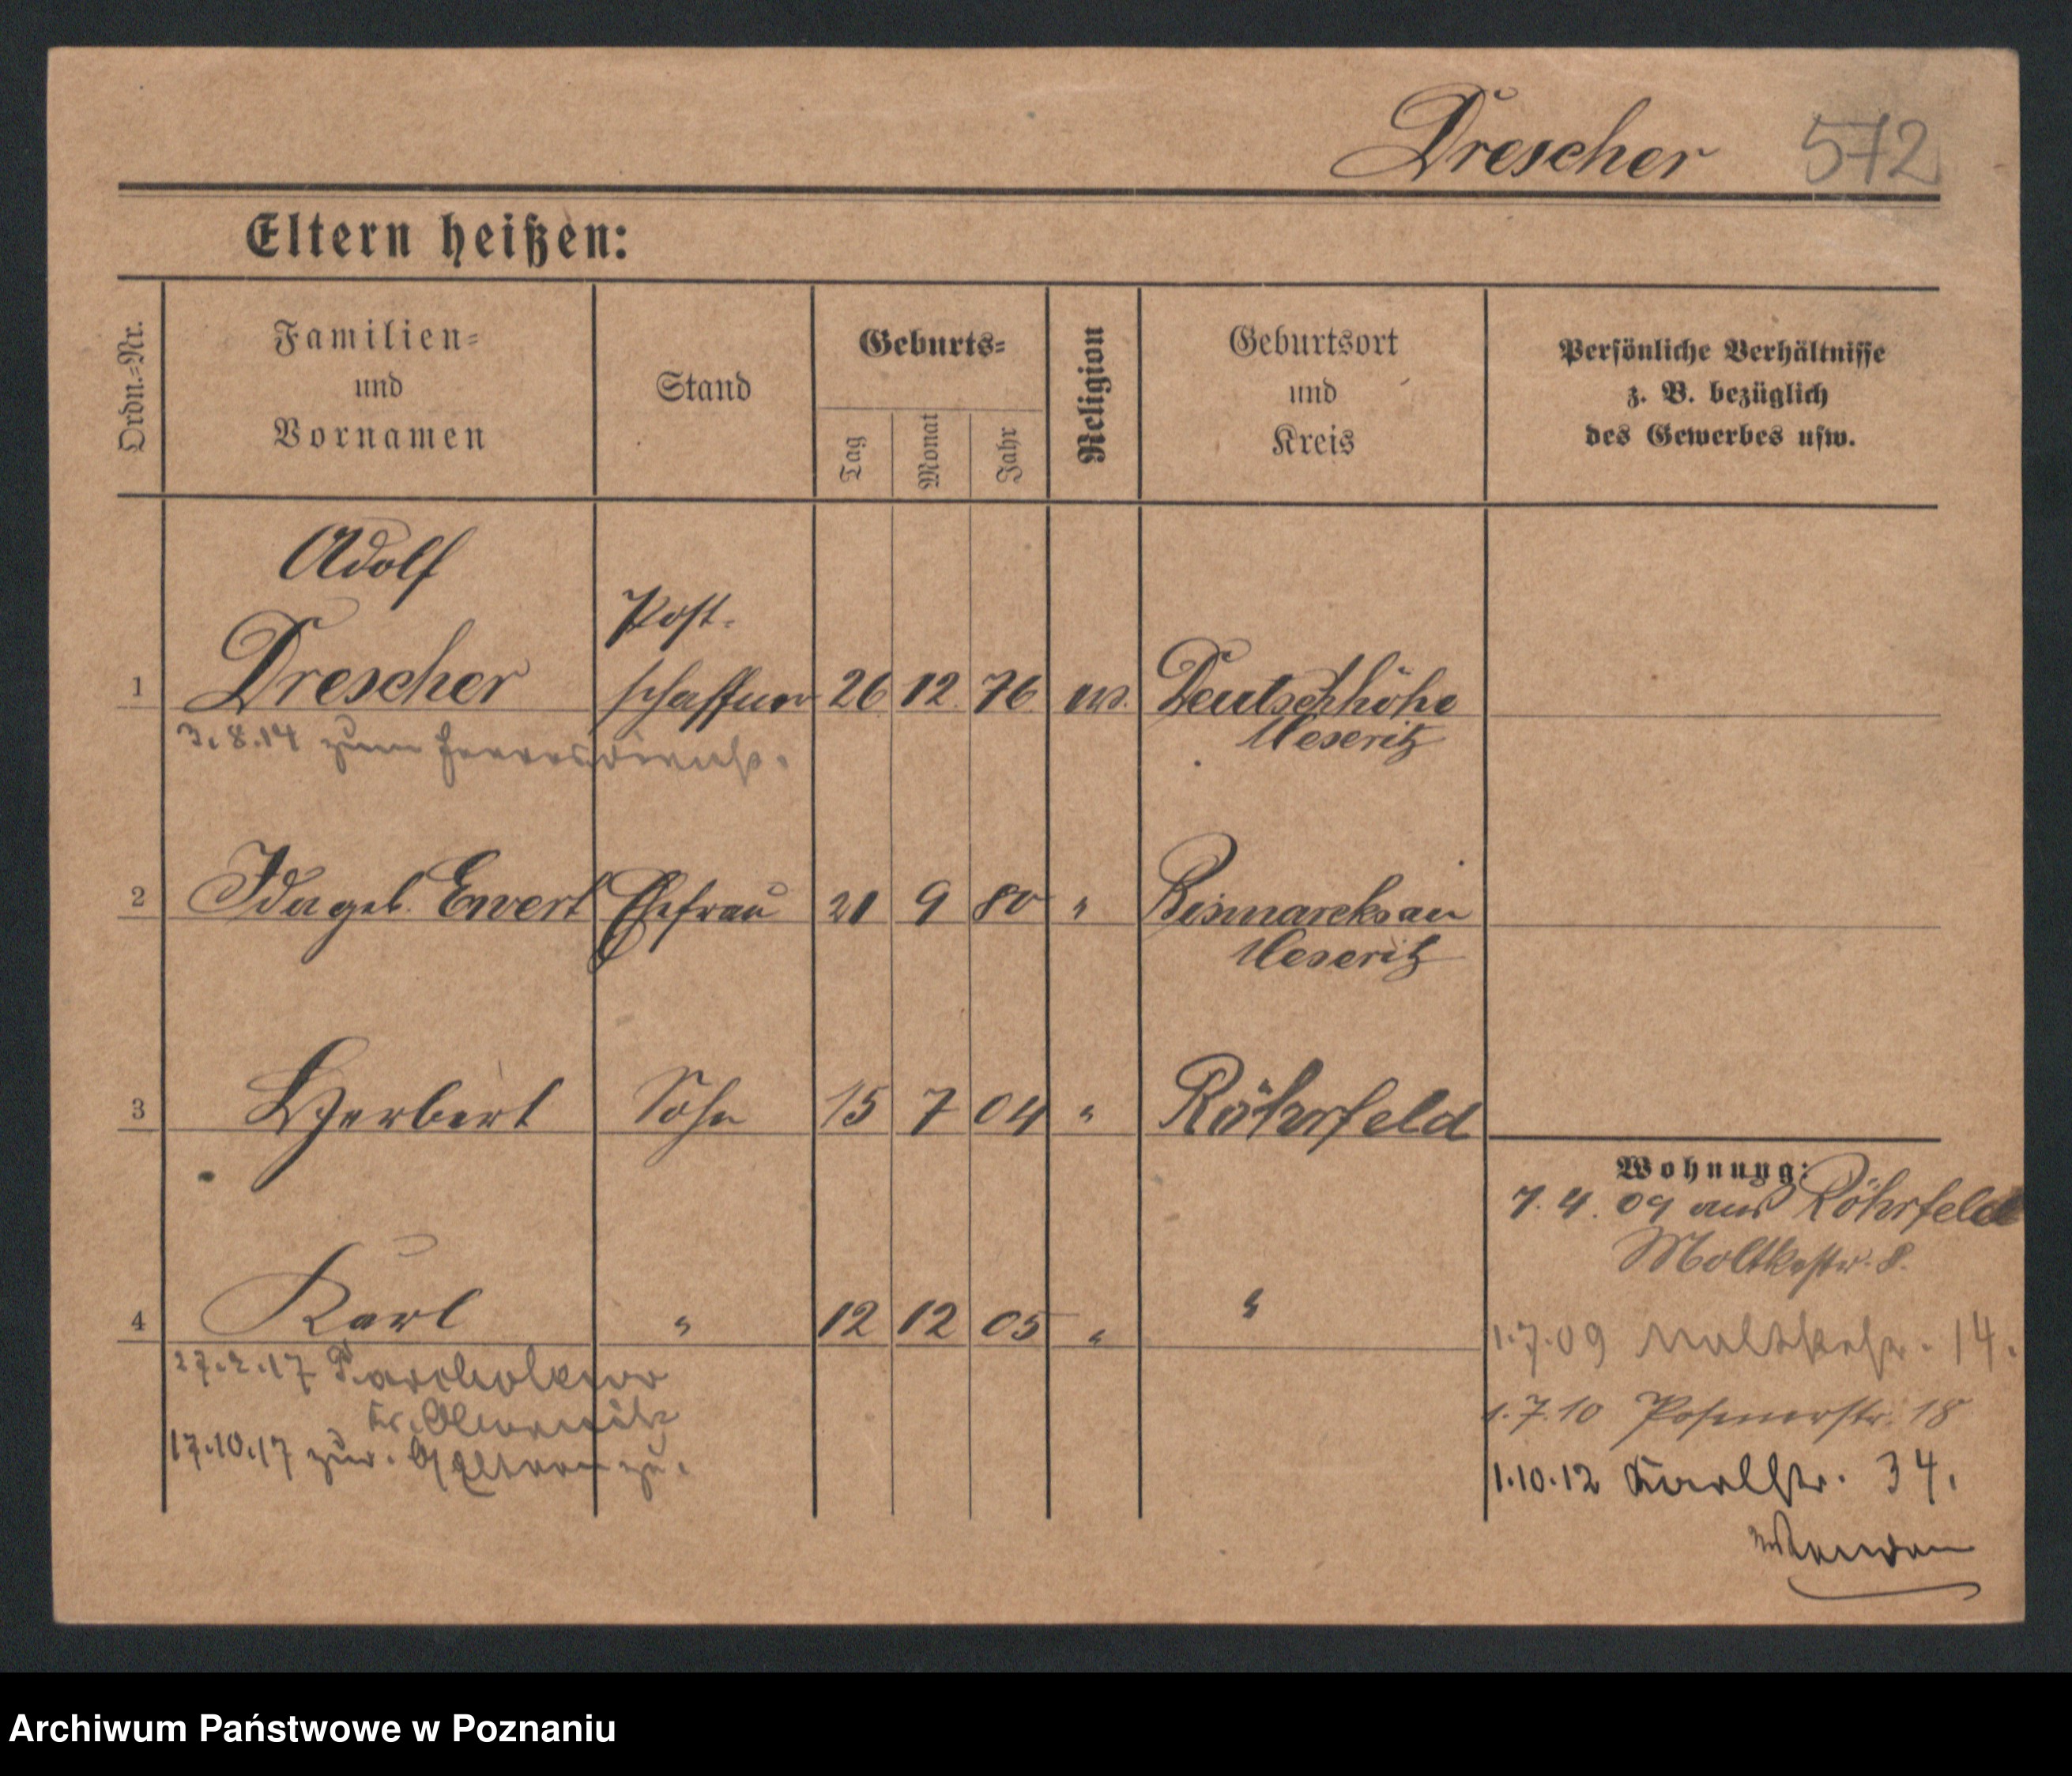 Drescher 572
Eltern heißen:
Ordn.=Nr.
Familien=
und
Vornamen
Stand
Geburts=
Tag
Monat
Jahr
Religion
Geburtsort
und
Kreis
Persönliche Verhältnisse
z. B. bezüglich
des Gewerbes usw.
Adolf
Post-
1 Drescher schaffner 26 12. 76. ev. Deutschhöhe
3.8.14 zum Heeresdienst. Meseritz
2 Ida geb. Ewert Ehefrau 21 9 80 " Bismarcksau
Meseritz
3 Herbert Sohn 15 7 04 " Röhrfeld
Wohnung:
7. 4. 09 aus Röhrfeld
Moltkestr. 8.
4 Karl " 12 12 05 " "
1.7.09 Moltkestr. 14.
27.2.17
1.7.10 Posenerstr. 18
17.10.17 zur.
1.10.12 Karlstr. 34.
Archiwum Państwowe w Poznaniu